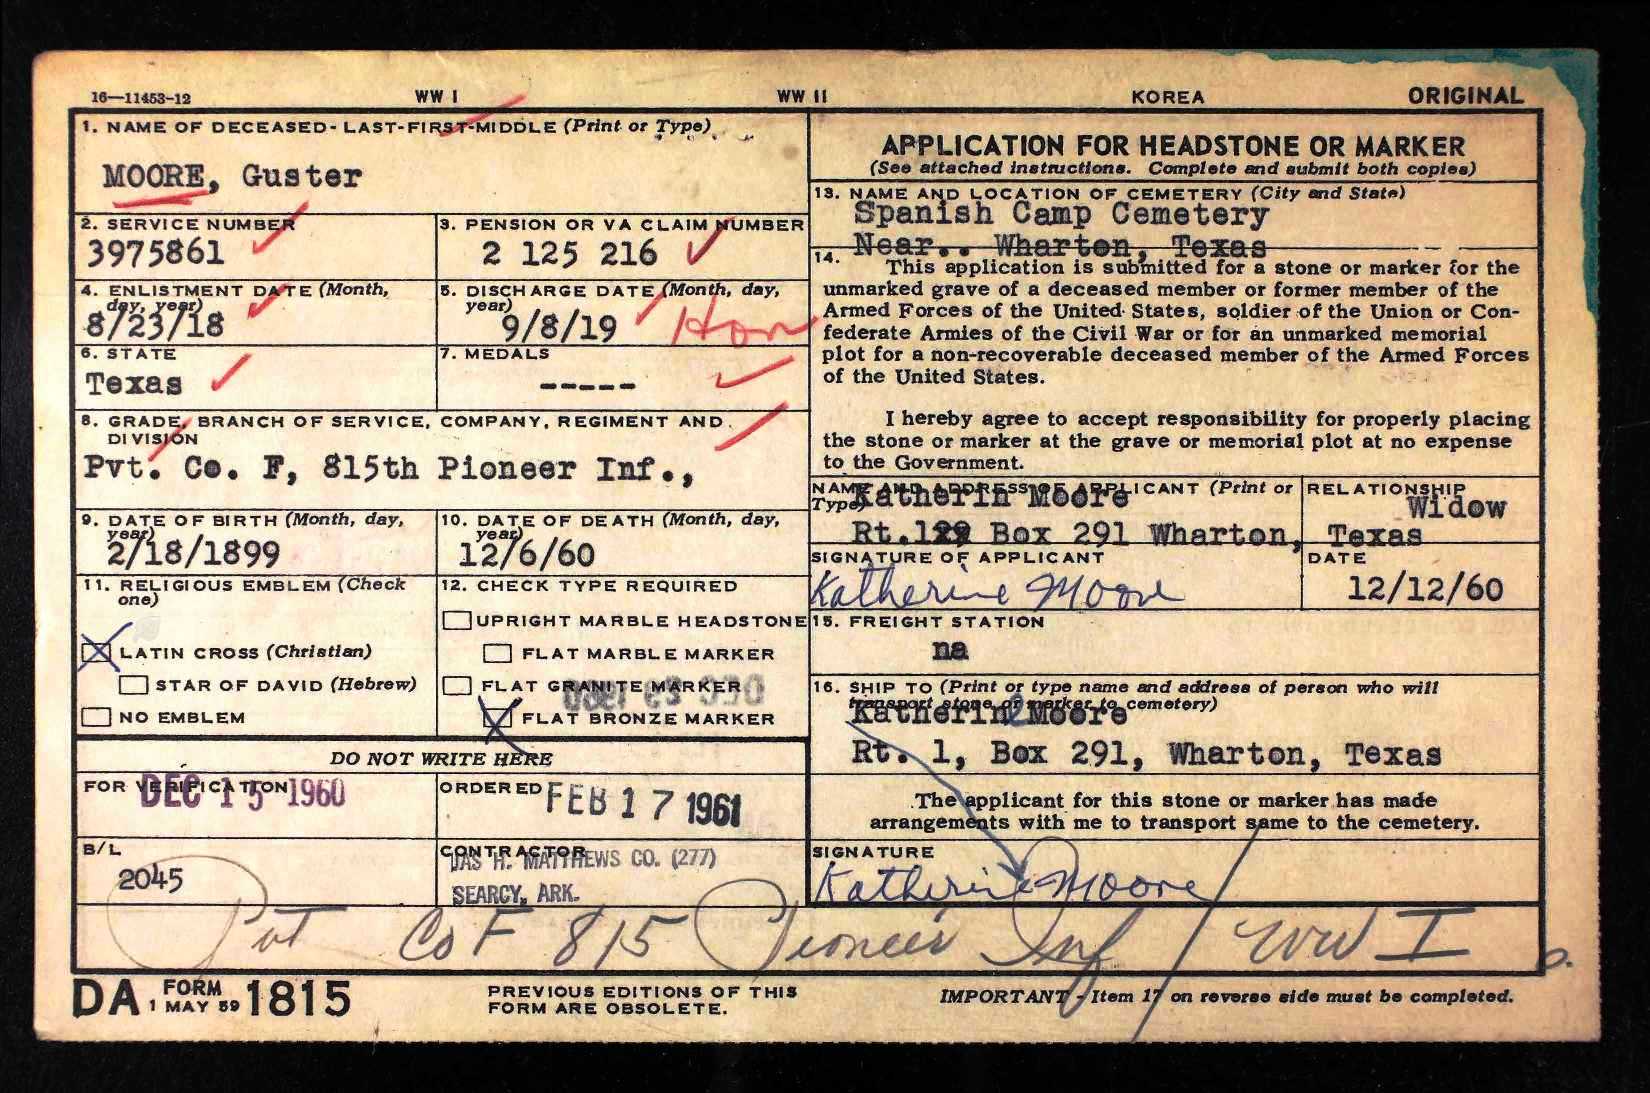 16—11453-12 WW I WW II KOREA ORIGINAL
1. NAME OF DECEASED- LAST-FIRST-MIDDLE (Print or Type)
MOORE, Guster
2. SERVICE NUMBER
3975861
3. PENSION OR VA CLAIM NUMBER
2 125 216
4. ENLISTMENT DATE (Month,
day, year)
8/23/18
5. DISCHARGE DATE (Month, day,
year)
9/8/19 Hon
6. STATE
Texas
7. MEDALS
-----
8. GRADE, BRANCH OF SERVICE, COMPANY, REGIMENT AND
DIVISION
Pvt. Co. F, 815th Pioneer Inf.,
9. DATE OF BIRTH (Month, day,
year)
2/18/1899
10. DATE OF DEATH (Month, day,
year)
12/6/60
11. RELIGIOUS EMBLEM (Check
one)
LATIN CROSS (Christian)
STAR OF DAVID (Hebrew)
NO EMBLEM
12. CHECK TYPE REQUIRED
UPRIGHT MARBLE HEADSTONE
FLAT MARBLE MARKER
FLAT GRANITE MARKER
FLAT BRONZE MARKER
DO NOT WRITE HERE
FOR VERIFICATION
DEC 15 1960
ORDERED
FEB 17 1961
B/L
2045
CONTRACTOR
JAS H. MATTHEWS CO. (277)
SEARCY, ARK.
APPLICATION FOR HEADSTONE OR MARKER
(See attached instructions. Complete and submit both copies)
13. NAME AND LOCATION OF CEMETERY (City and State)
Spanish Camp Cemetery
Near.. Wharton, Texas
14.
This application is submitted for a stone or marker for the
unmarked grave of a deceased member or former member of the
Armed Forces of the United States, soldier of the Union or Con-
federate Armies of the Civil War or for an unmarked memorial
plot for a non-recoverable deceased member of the Armed Forces
of the United States.
I hereby agree to accept responsibility for properly placing
the stone or marker at the grave or memorial plot at no expense
to the Government.
NAME AND ADDRESS OF APPLICANT (Print or
Type)
Katherin Moore
RELATIONSHIP
Widow
Rt. Box 291 Wharton, Texas
SIGNATURE OF APPLICANT
Katherine Moore
DATE
12/12/60
15. FREIGHT STATION
na
16. SHIP TO (Print or type name and address of person who will
transport stone or marker to cemetery)
Katherine Moore
Rt. 1, Box 291, Wharton, Texas
The applicant for this stone or marker has made
arrangements with me to transport same to the cemetery.
SIGNATURE
Katherine Moore
Pvt Co F 815 Pioneer Inf / WW I
DA FORM 1 MAY 59 1815
PREVIOUS EDITIONS OF THIS
FORM ARE OBSOLETE.
IMPORTANT - Item 17 on reverse side must be completed.